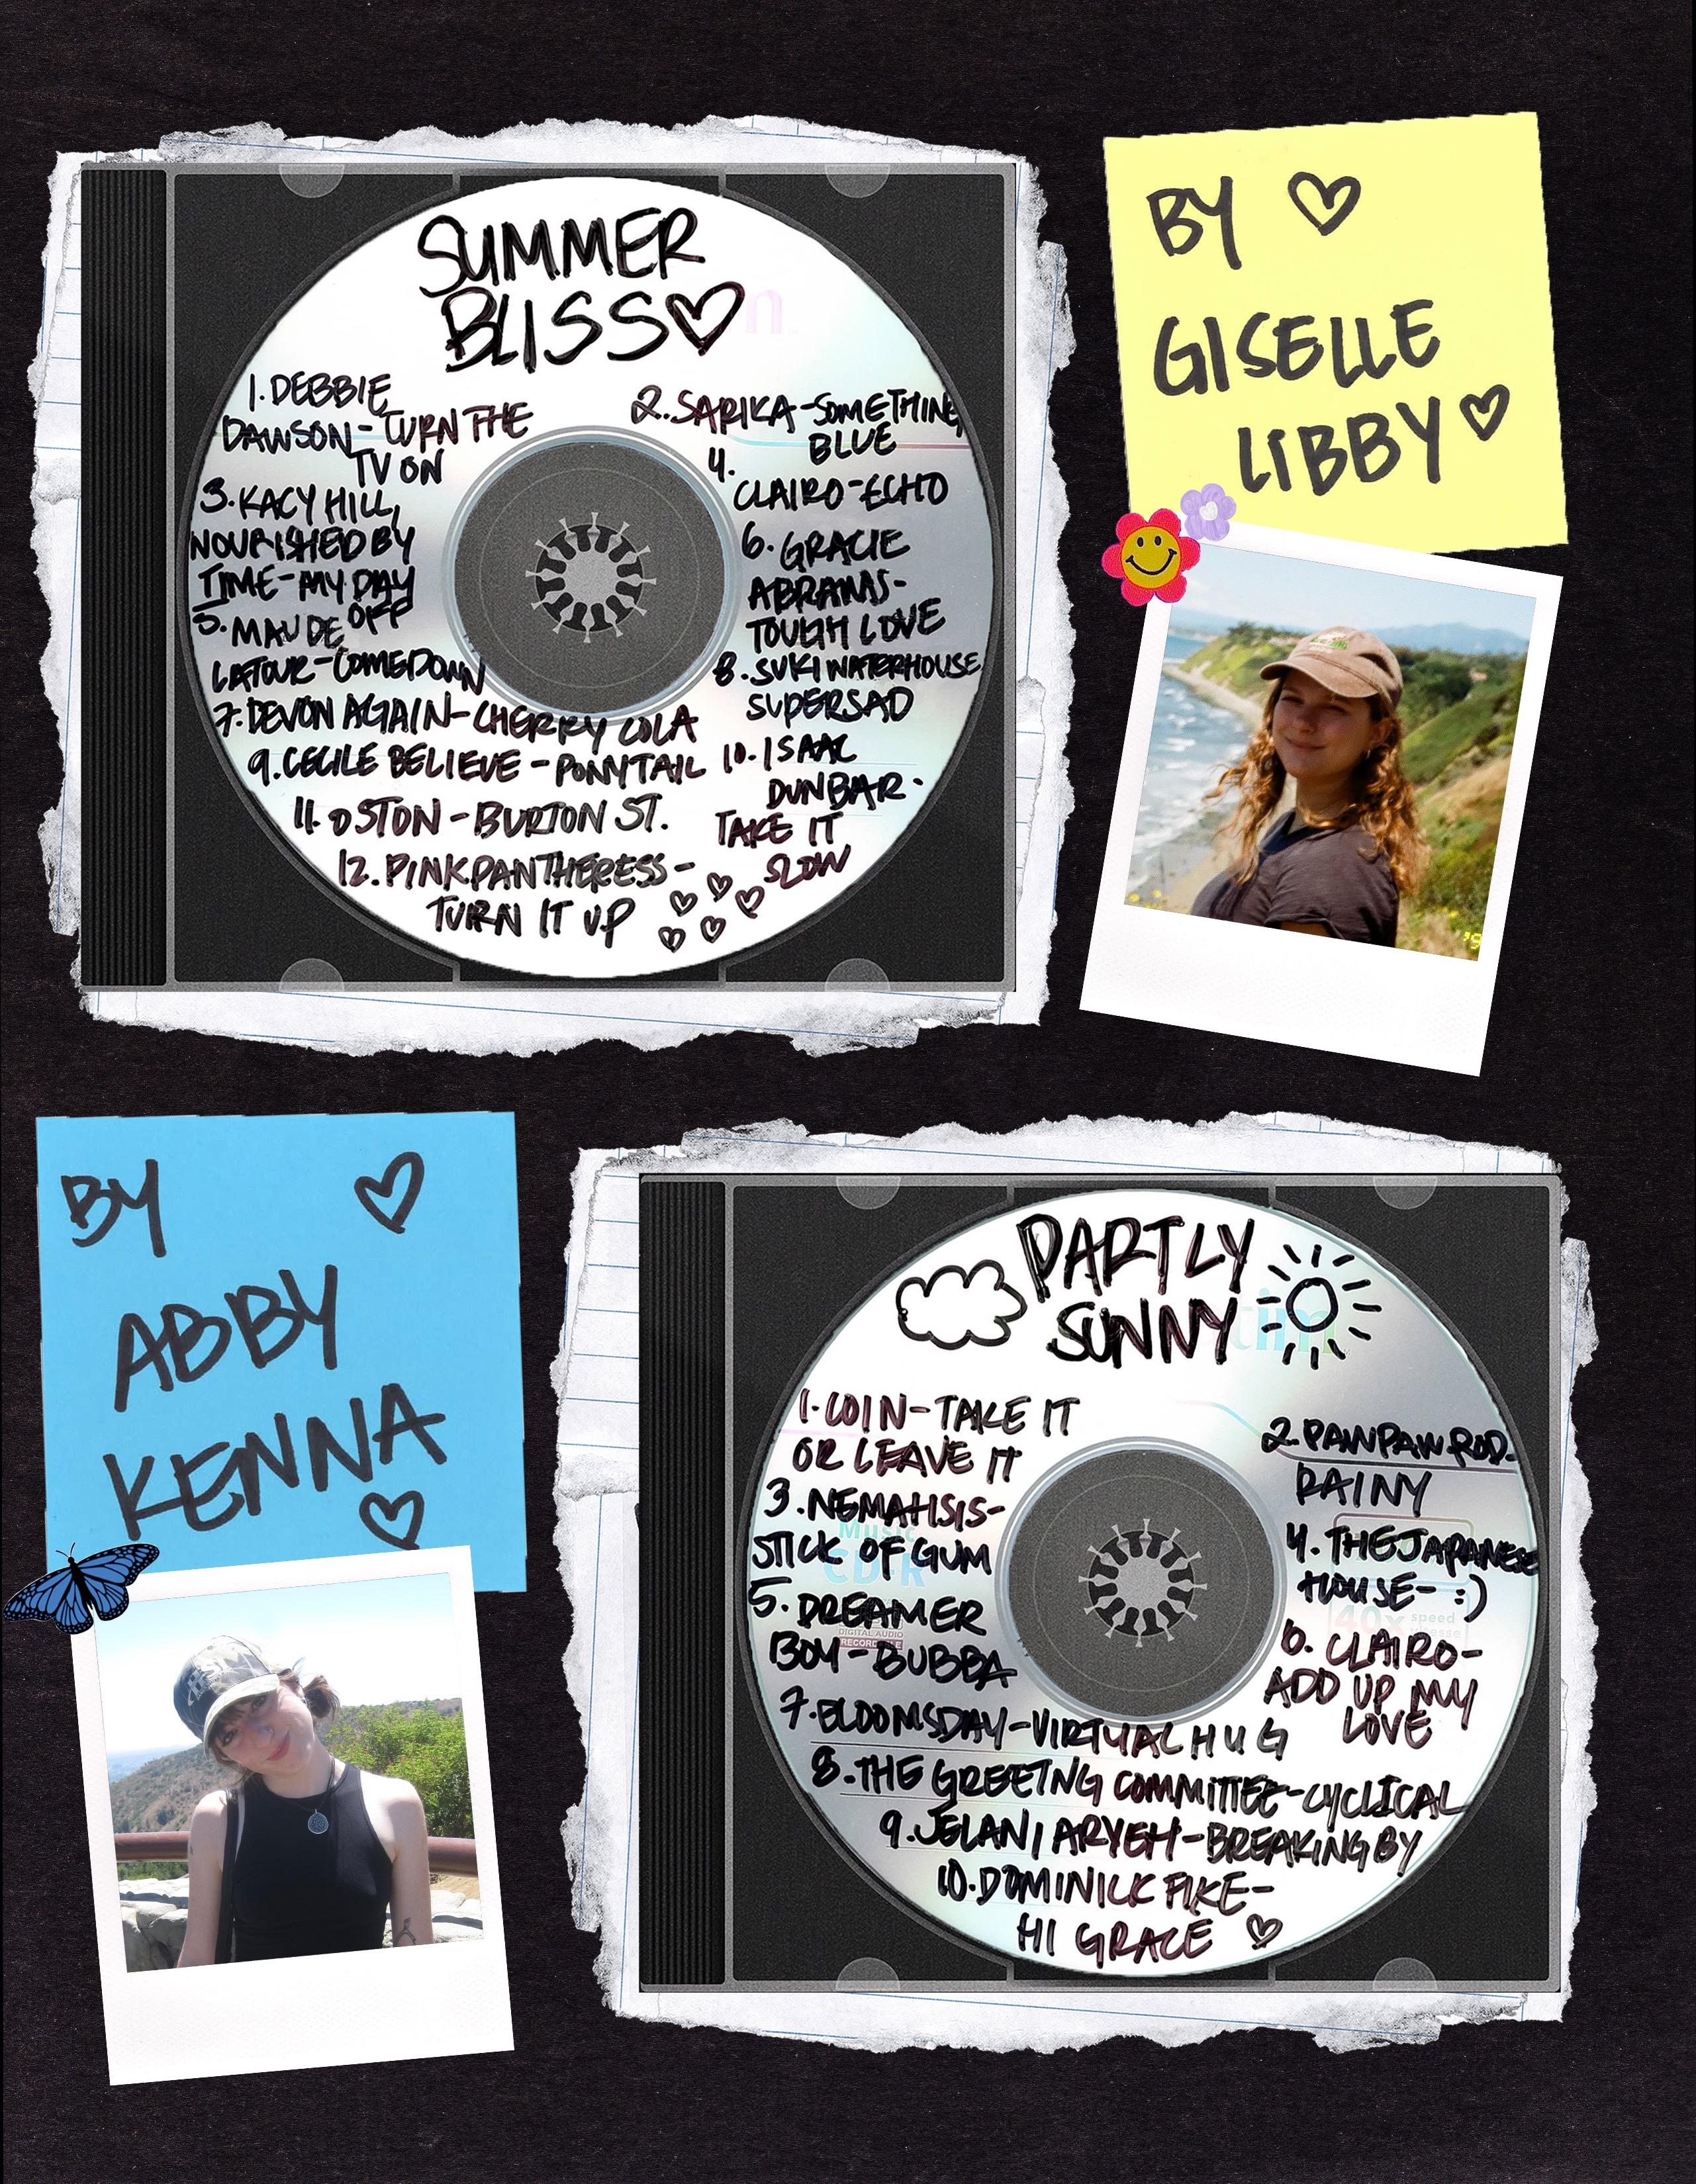 SUMMER
BLISS♡
1. DEBBIE
DAWSON - TURN THE
TV ON
2. SARIKA - SOMETHING
BLUE
3. KACY HILL,
NOURISHED BY
TIME - MY DAY
OFF
4.
CLAIRO - ECHO
5. MAUDE
LATOUR - COMEDOWN
6. GRACIE
ABRAMS -
TOUGH LOVE
7. DEVON AGAIN - CHERRY COLA
8. SUKI WATERHOUSE
SUPERSAD
9. CECILE BELIEVE - PONYTAIL
10. ISAAC
DUNBAR -
TAKE IT
SLOW
11. OSTON - BURTON ST.
12. PINKPANTHERESS -
TURN IT UP
BY ♡
GISELLE
LIBBY ♡
BY ♡
ABBY
KENNA
♡
PARTLY
SUNNY
1. COIN - TAKE IT
OR LEAVE IT
2. PAWPAW ROD -
RAINY
3. NEMAHSIS -
STICK OF GUM
4. THE JAPANESE
HOUSE - :)
5. DREAMER
BOY - BUBBA
6. CLAIRO -
ADD UP MY
LOVE
7. BLOOMSDAY - VIRTUAL HUG
8. THE GREETING COMMITTEE - CYCLICAL
9. JELANI ARYEH - BREAKING BY
10. DOMINICK FIKE -
HI GRACE ♡
Music
CD-R
DIGITAL AUDIO
RECORDABLE
40x speed